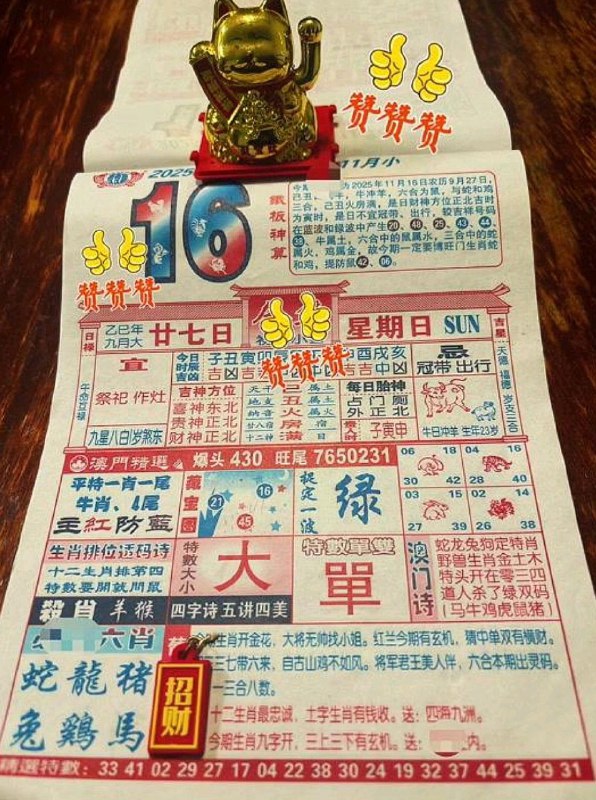 赞赞赞
2025 11月小
16
鐵板神算
2025年11月16日农历9月27日,
牛冲羊, 六合为鼠, 与蛇和鸡
三合, 己丑火房满, 是日财神方位正北吉时
为寅时, 是日不宜冠带、出行, 较吉祥号码
在蓝波和绿波中产生20、48、29、43、44、
33、牛属土, 六合中的鼠属水, 三合中的蛇
属火, 鸡属金, 故今期一定要博旺门生肖蛇
和鸡, 提防鼠42、06。
赞赞赞
赞赞赞
乙巳年
九月大
廿七日
星期日 SUN
日禄
吉星
天恩 福德 岁支三合
宜
祭祀 作灶
九星八白/岁煞东
今日时辰吉凶
子丑寅卯
酉戌亥
吉神方位
喜神东北
贵神东北
财神正北
天干
地支
纳音
廿八宿
十二神
己丑火房满
属土
属土
每日胎神
占门厕
外正北
子寅申
忌
冠带 出行
牛日冲羊 生年23岁
澳門精選 爆头 430 旺尾 7650231
平特一肖一尾
牛肖、4尾
主紅防藍
藏宝图
21 16 45
捉定一波
绿
06 18
30 42
03 15
27 39
19 31
07 43
02 14
26 38
生肖排位透码诗
十二生肖排第四
特數要開就問鼠
殺肖 羊猴
特數大小
大
四字诗 五讲四美
特數單雙
單
澳门诗
蛇龙兔狗定特肖
野兽生肖金土木
特头开在零三四
道人杀了绿双码
(马牛鸡虎鼠猪)
六肖
蛇龍猪
兔鷄馬
生肖开金花, 大将无帅找小姐。红兰今期有玄机, 猜中单双有横财。
三七带六来, 自古山鸡不如风。将军君王美人伴, 六合本期出灵码。
一三合八数。
十二生肖最忠诚, 土字生肖有钱收。送: 四海九洲。
今期生肖九字开, 三上三下有玄机。送: 内。
招财
精選特數: 33 41 02 29 27 17 04 22 38 30 24 19 32 37 44 25 39 31